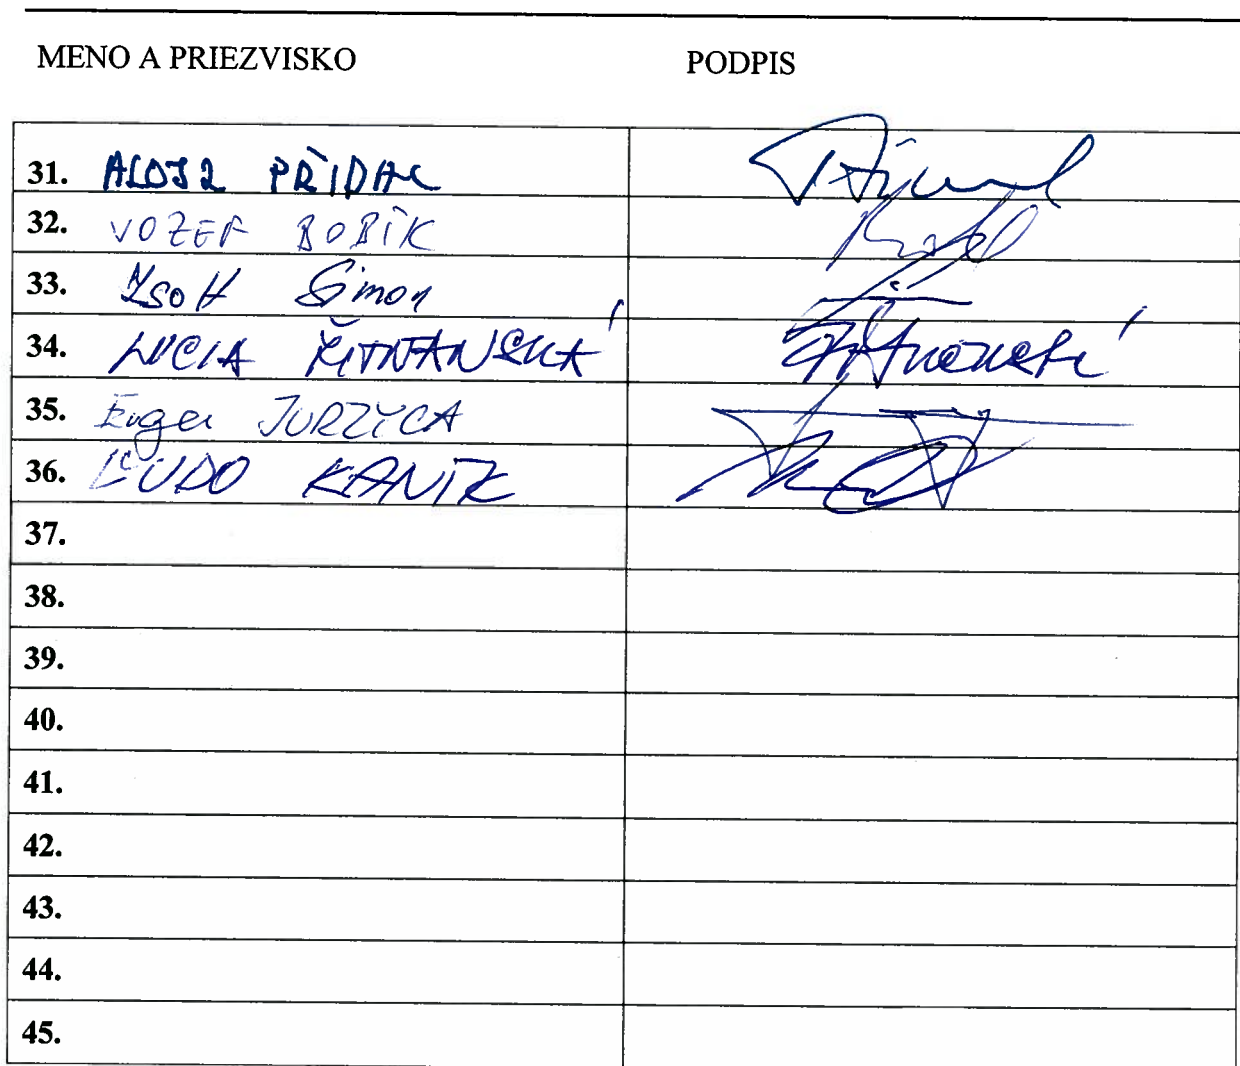 MENO A PRIEZVISKO PODPIS
31. ALOJZ PŘIDAL
32. JOZEF BOBÍK
33. Zsolt Simon
34. LUCIA ŽITŇANSKÁ
35. Eugen JURZYCA
36. ĽUDO KANÍK
37.
38.
39.
40.
41.
42.
43.
44.
45.